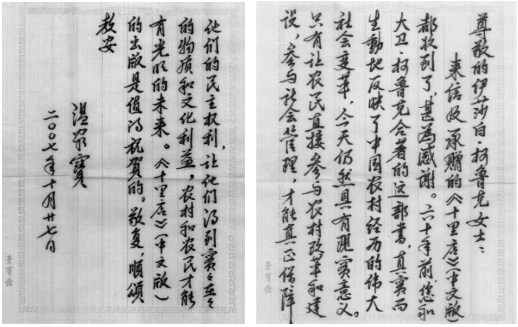 尊敬的伊莎白·柯鲁克女士：
来信及承赠的《十里店》（中文版）
都收到了，甚为感谢。六十年前，您和
大卫·柯鲁克合著的这部书，真实而
生动地反映了中国农村经历的伟大
社会变革，今天仍然具有现实意义。
只有让农民直接参与农村改革和建
设，参与社会管理，才能真正保障
他们的民主权利，让他们得到实实在在
的物质和文化利益。农村和农民才能
有光明的未来。《十里店》（中文版）
的出版是值得祝贺的。敬复，顺颂
教安
温家宝
二〇〇七年十月廿七日